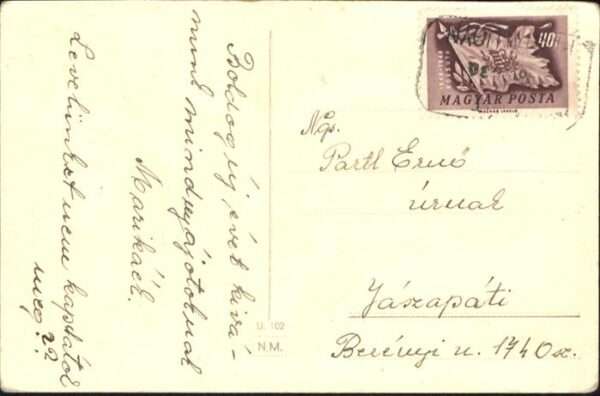 Boldog új évet kivá-
nunk mindnyájotoknak
Marikáék.
Levelünket nem kaptátok
meg??
40f
MAGYAR POSTA
Ngs.
Partl Ernő
úrnak
Jászapáti
Berényi u. 1740 sz.
U. 102
N.M.